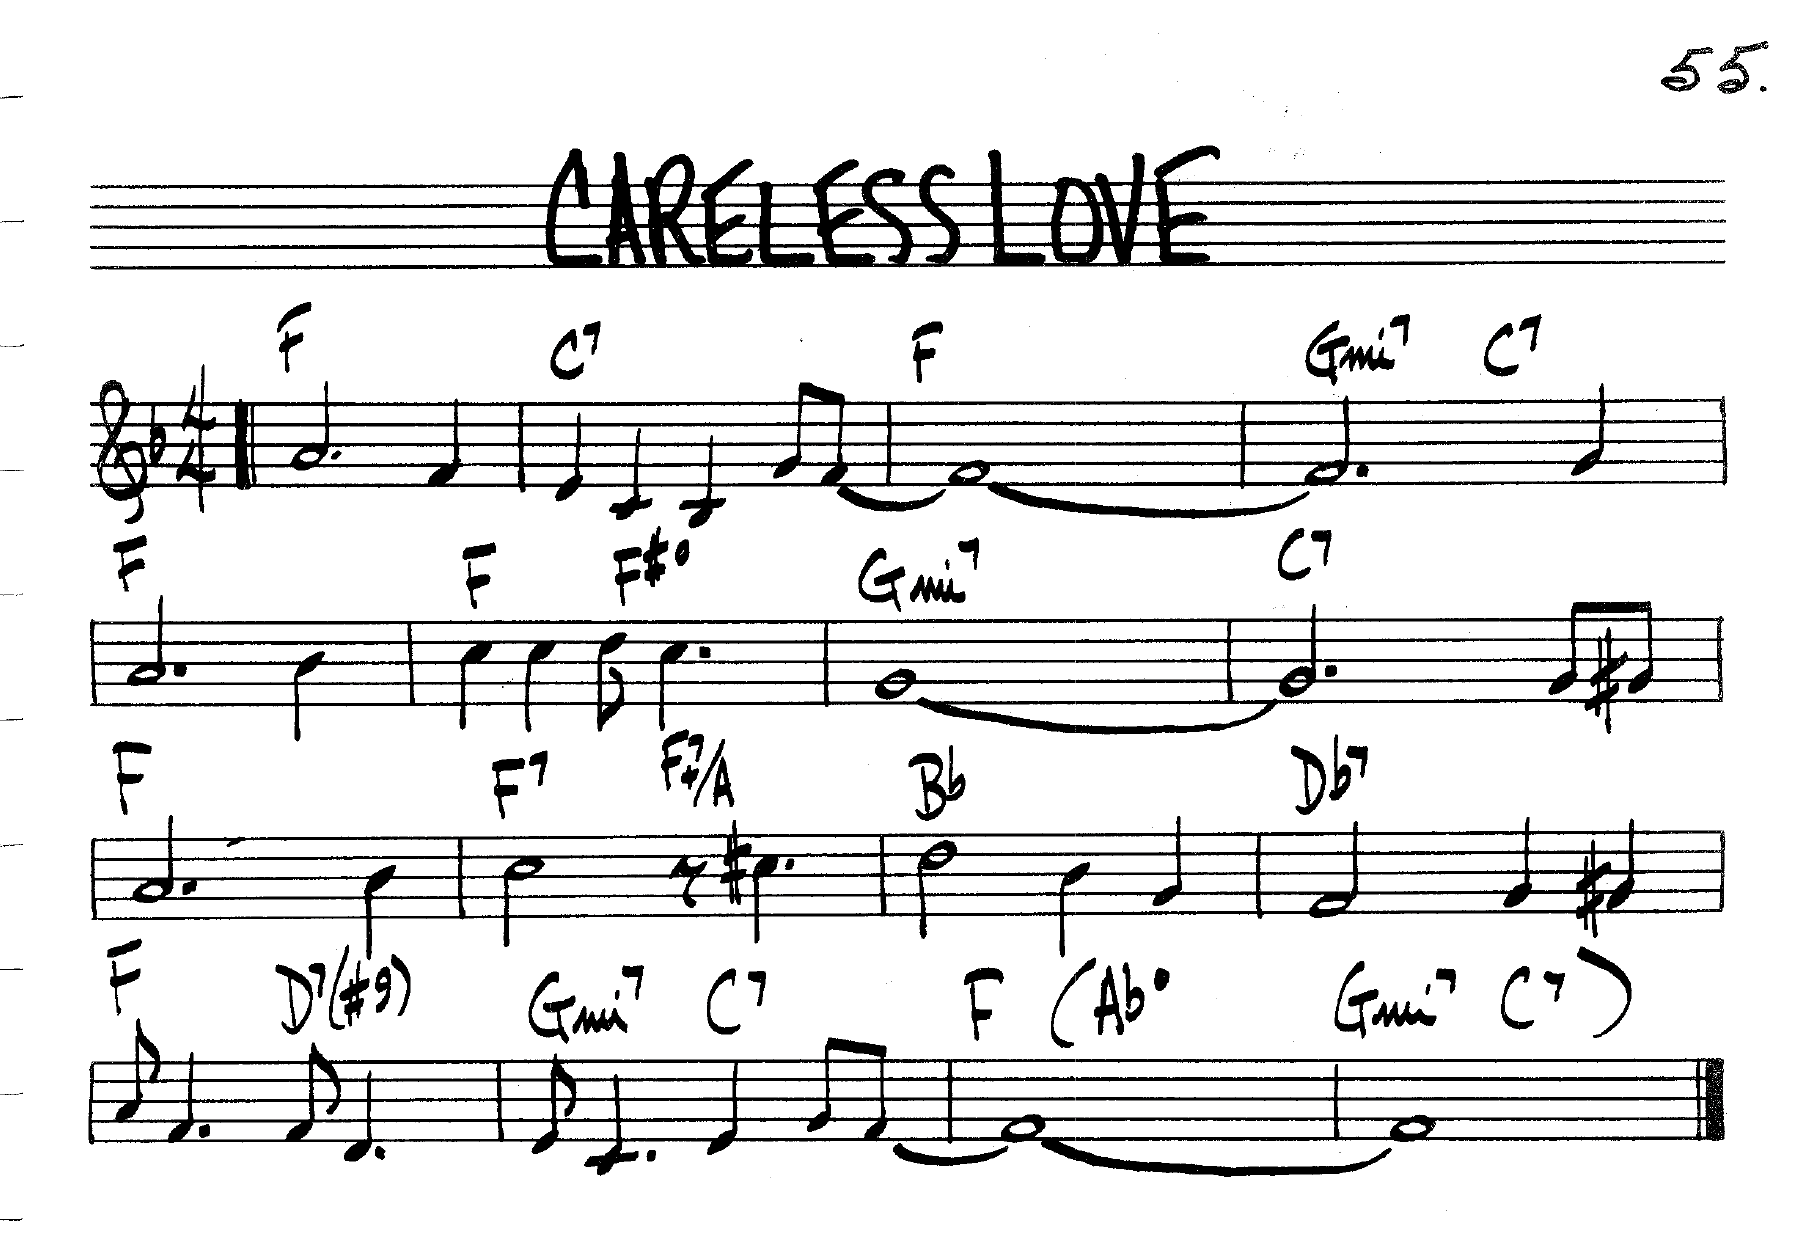 55.
CARELESS LOVE
F C7 F Gmi7 C7
4
4
F F F#° Gmi7 C7
F F7 F+7/A Bb Db7
F D7(#9) Gmi7 C7 F (Ab° Gmi7 C7)